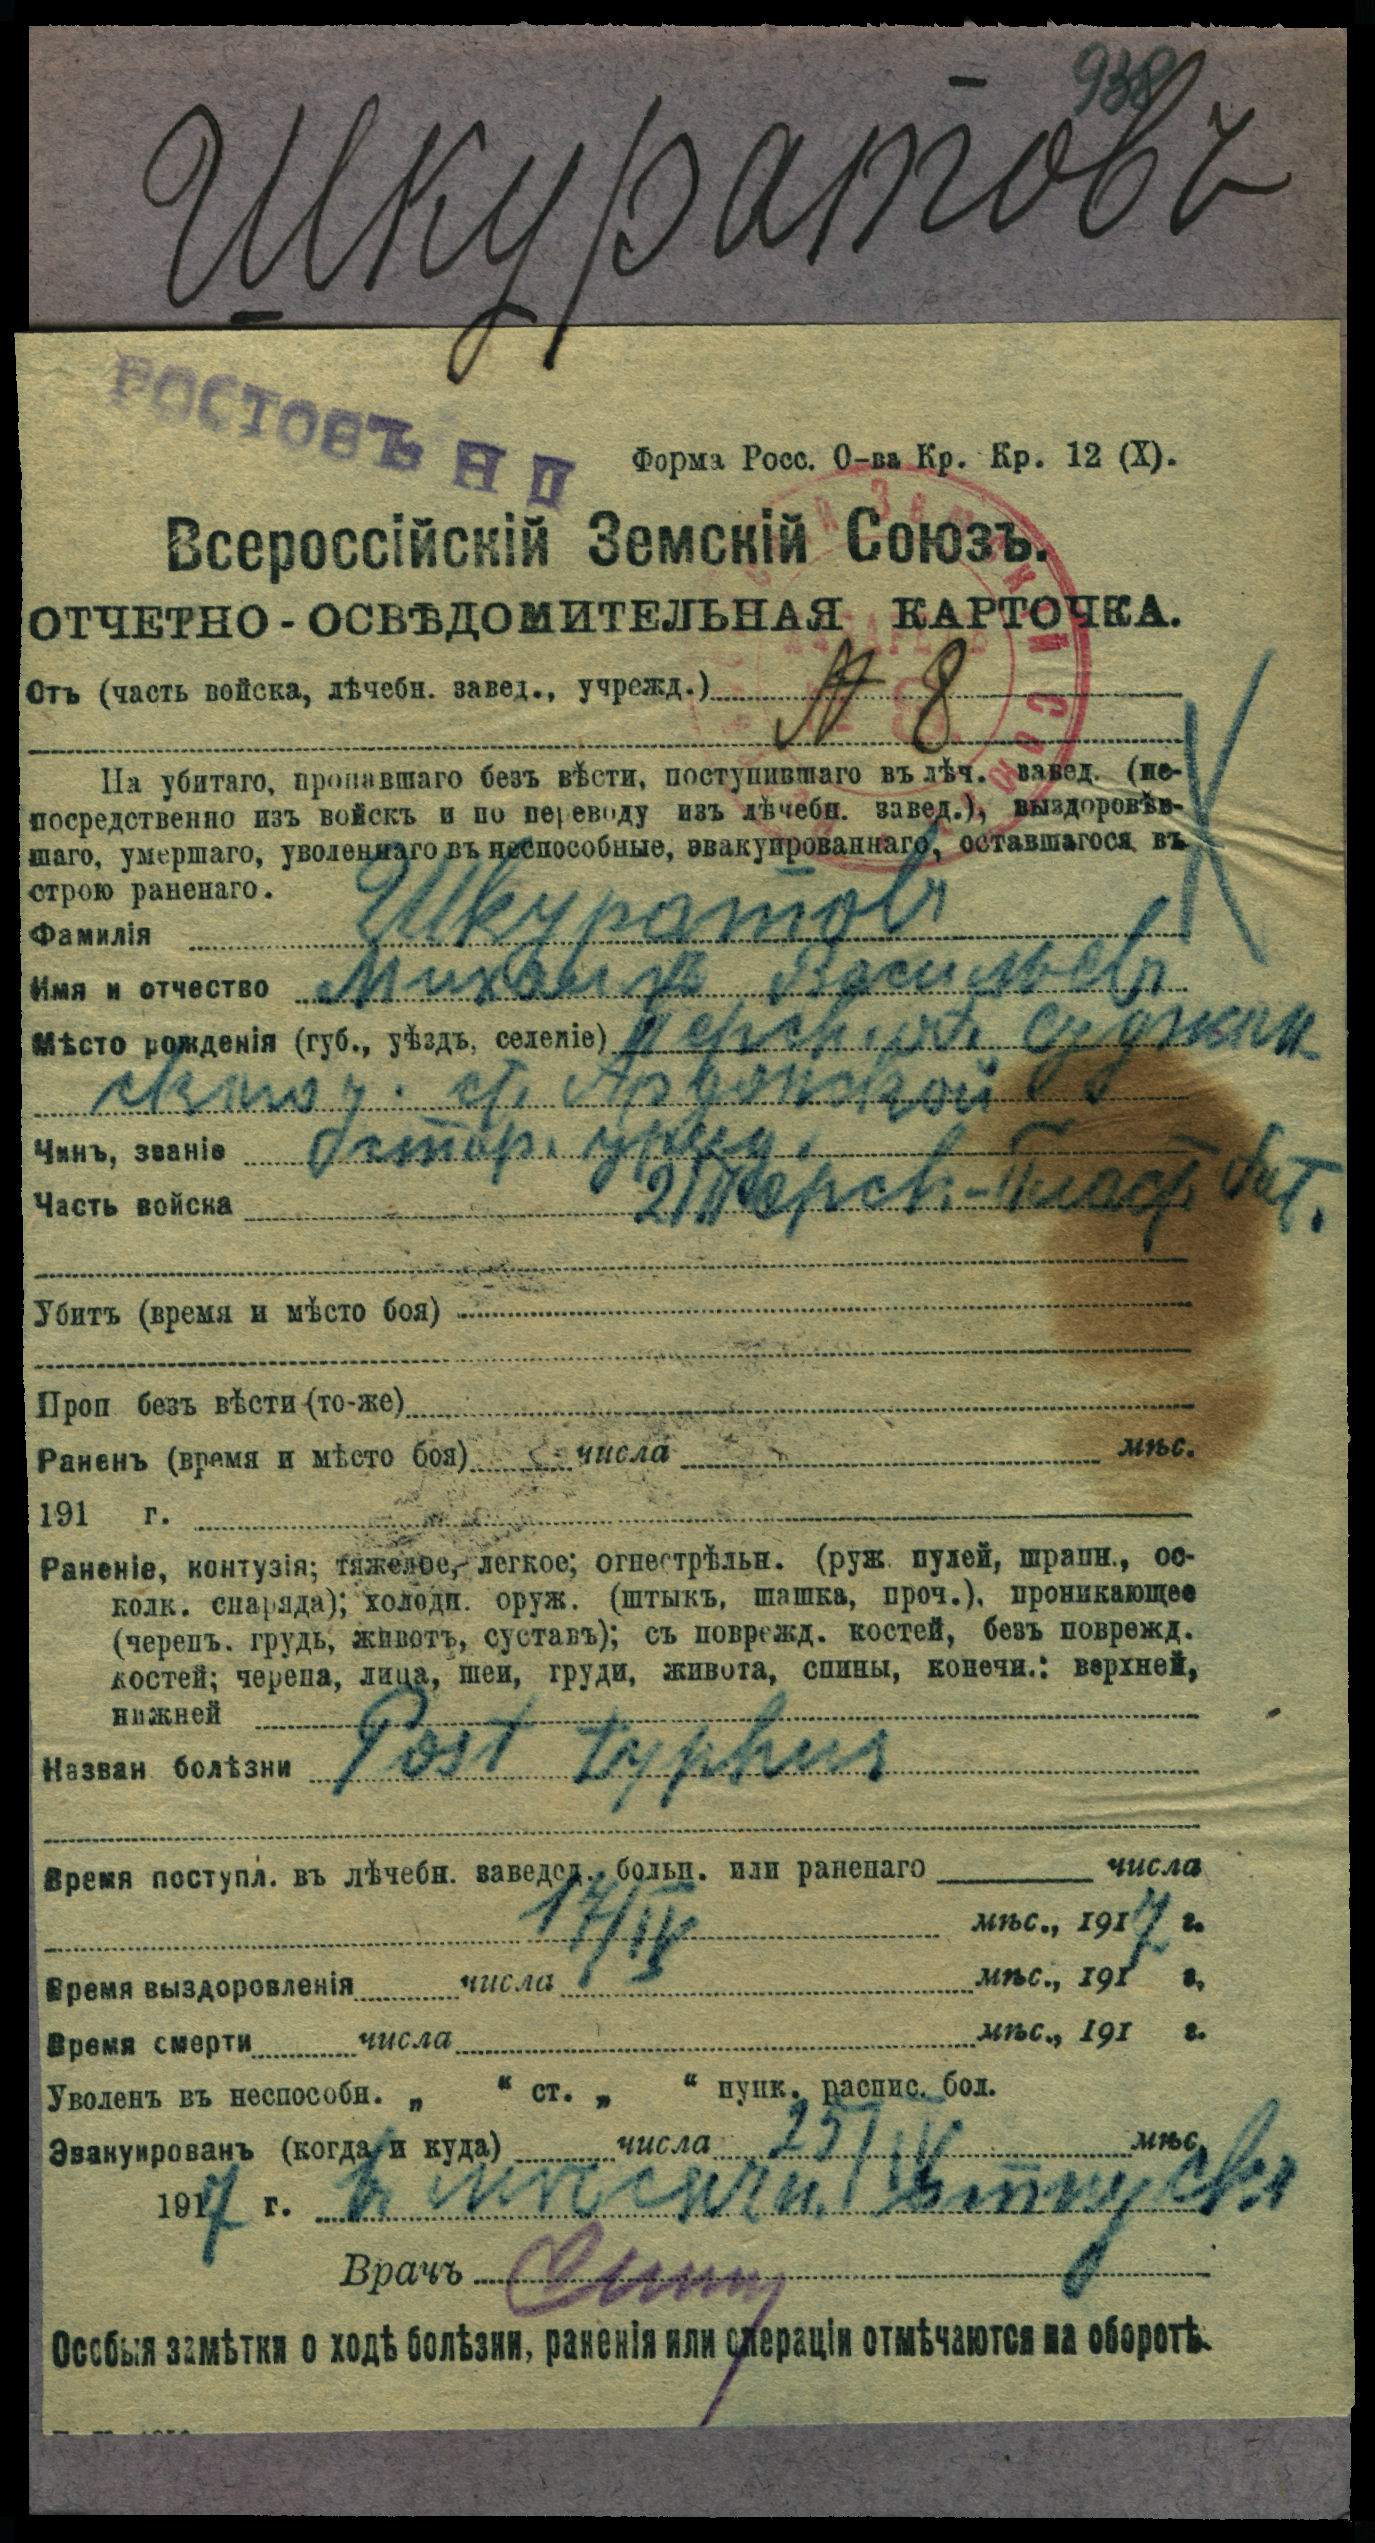 938
Шкуратовъ
РОСТОВЪ Н Д
Форма Росс. О-ва Кр. Кр. 12 (X).
Всероссійскій Земскій Союзъ.
ОТЧЕТНО-ОСВѢДОМИТЕЛЬНАЯ КАРТОЧКА.
Отъ (часть войска, лѣчебн. завед., учрежд.) № 8
На убитаго, пропавшаго безъ вѣсти, поступившаго въ лѣч. завед. (не-
посредственно изъ войскъ и по переводу изъ лѣчебн. завед.), выздоровѣв-
шаго, умершаго, уволеннаго въ неспособные, эвакуированнаго, оставшагося въ
строю раненаго.
Фамилія Шкуратовъ
Имя и отчество Михаилъ Васильевъ
Мѣсто рожденія (губ., уѣздъ, селеніе) Терск. об. Сунжен
ск ст. Ардонской
Чинъ, званіе Старш. уряд.
Часть войска 2 Терск. Пласт. бат.
Убитъ (время и мѣсто боя)
Проп безъ вѣсти (то-же)
Раненъ (время и мѣсто боя) числа мѣс.
191 г.
Раненіе, контузія; тяжелое, легкое; огнестрѣльн. (руж. пулей, шрапн., ос-
колк. снаряда); холодн. оруж. (штыкъ, шашка, проч.), проникающее
(черепъ, грудь, животъ, суставъ); съ поврежд. костей, безъ поврежд.
костей; черепа, лица, шеи, груди, живота, спины, конечн.: верхней,
нижней
Назван болѣзни Post typhus
Время поступл. въ лѣчебн. заведед. больн. или раненаго числа
17/IV мѣс., 1917 г.
Время выздоровленія числа мѣс., 191 г.
Время смерти числа мѣс., 191 г.
Уволенъ въ неспособн. „ “ ст. „ “ пунк. распис. бол.
Эвакуированъ (когда и куда) числа 25/IV мѣс.
1917 г. в отпускъ
Врачъ
Особыя замѣтки о ходѣ болѣзни, раненія или операціи отмѣчаются на оборотѣ.